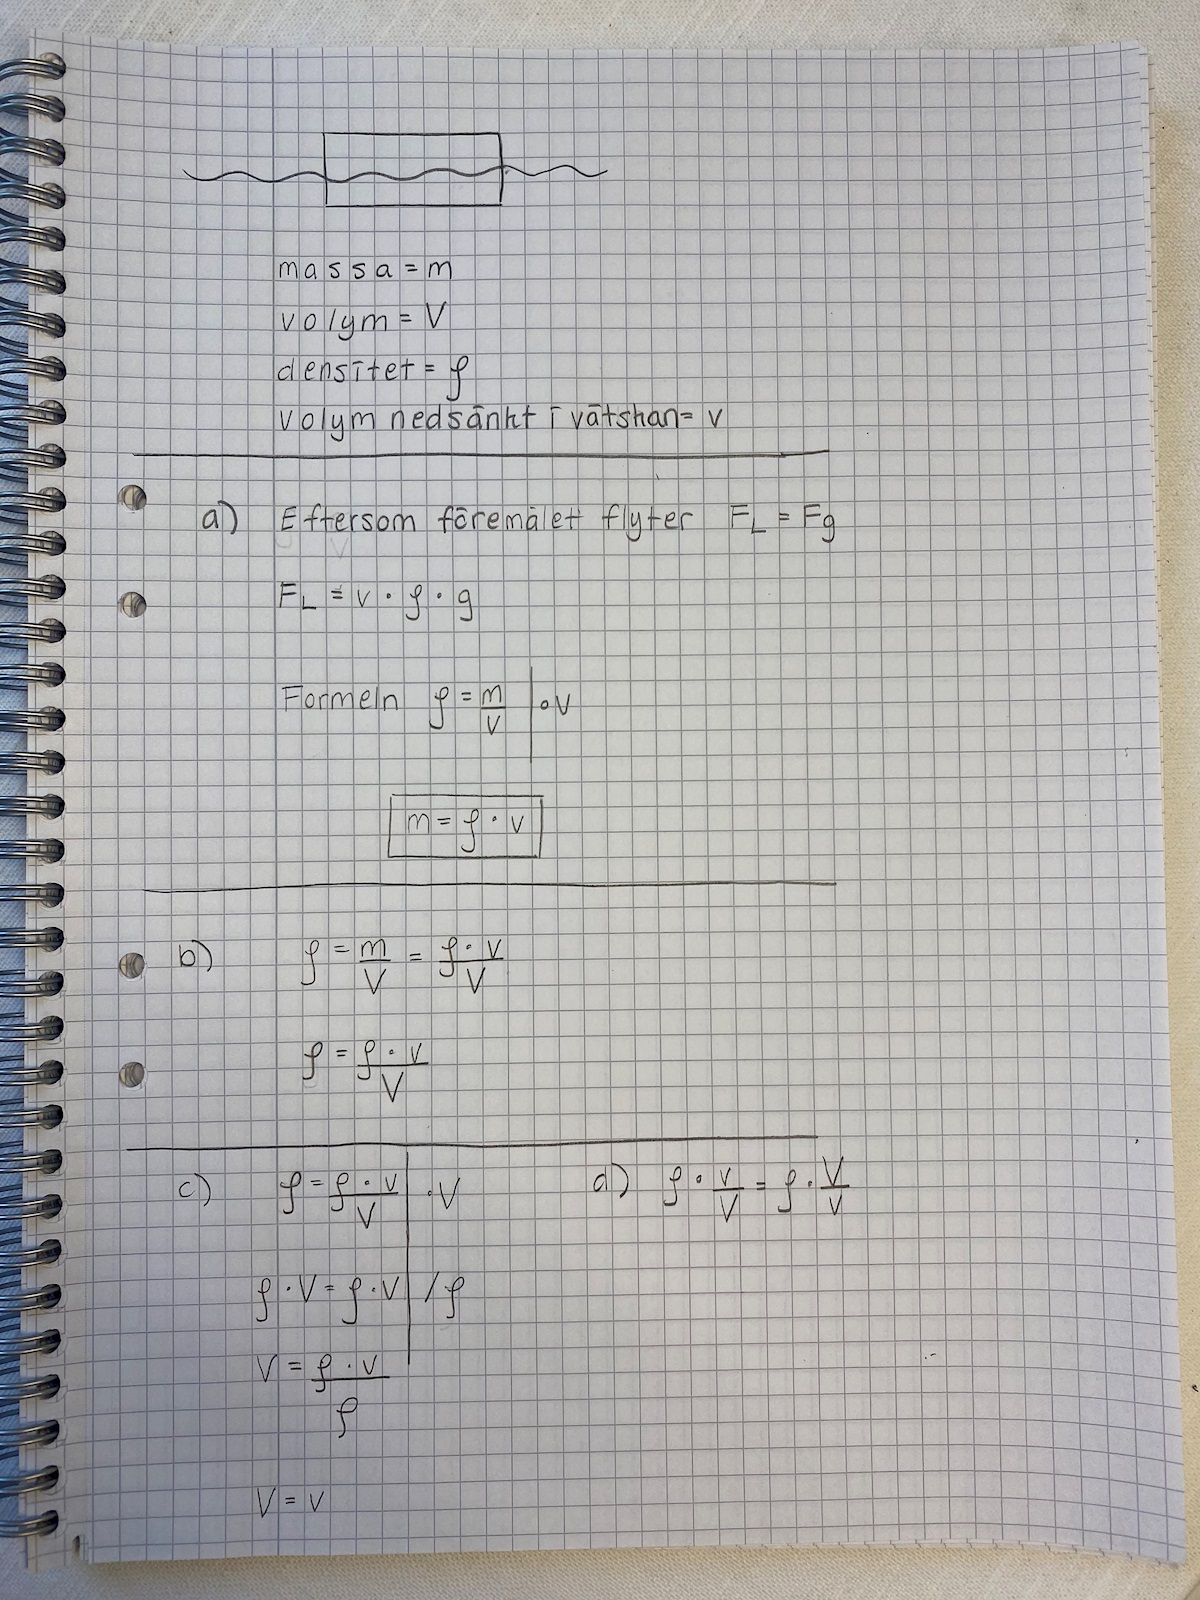 massa = m
volym = V
densitet = ρ
volym nedsänkt i vätskan = v
a) Eftersom föremålet flyter F_L = F_g
F_L = v · ρ · g
Formeln ρ = m/V | · V
m = ρ · v
b) ρ = m/V = ρ · v/V
ρ = ρ · v/V
c) ρ = ρ · v/V | · V
ρ · V = ρ · V | / ρ
V = ρ · v/ρ
V = v
d) ρ · v/V = ρ · V/v